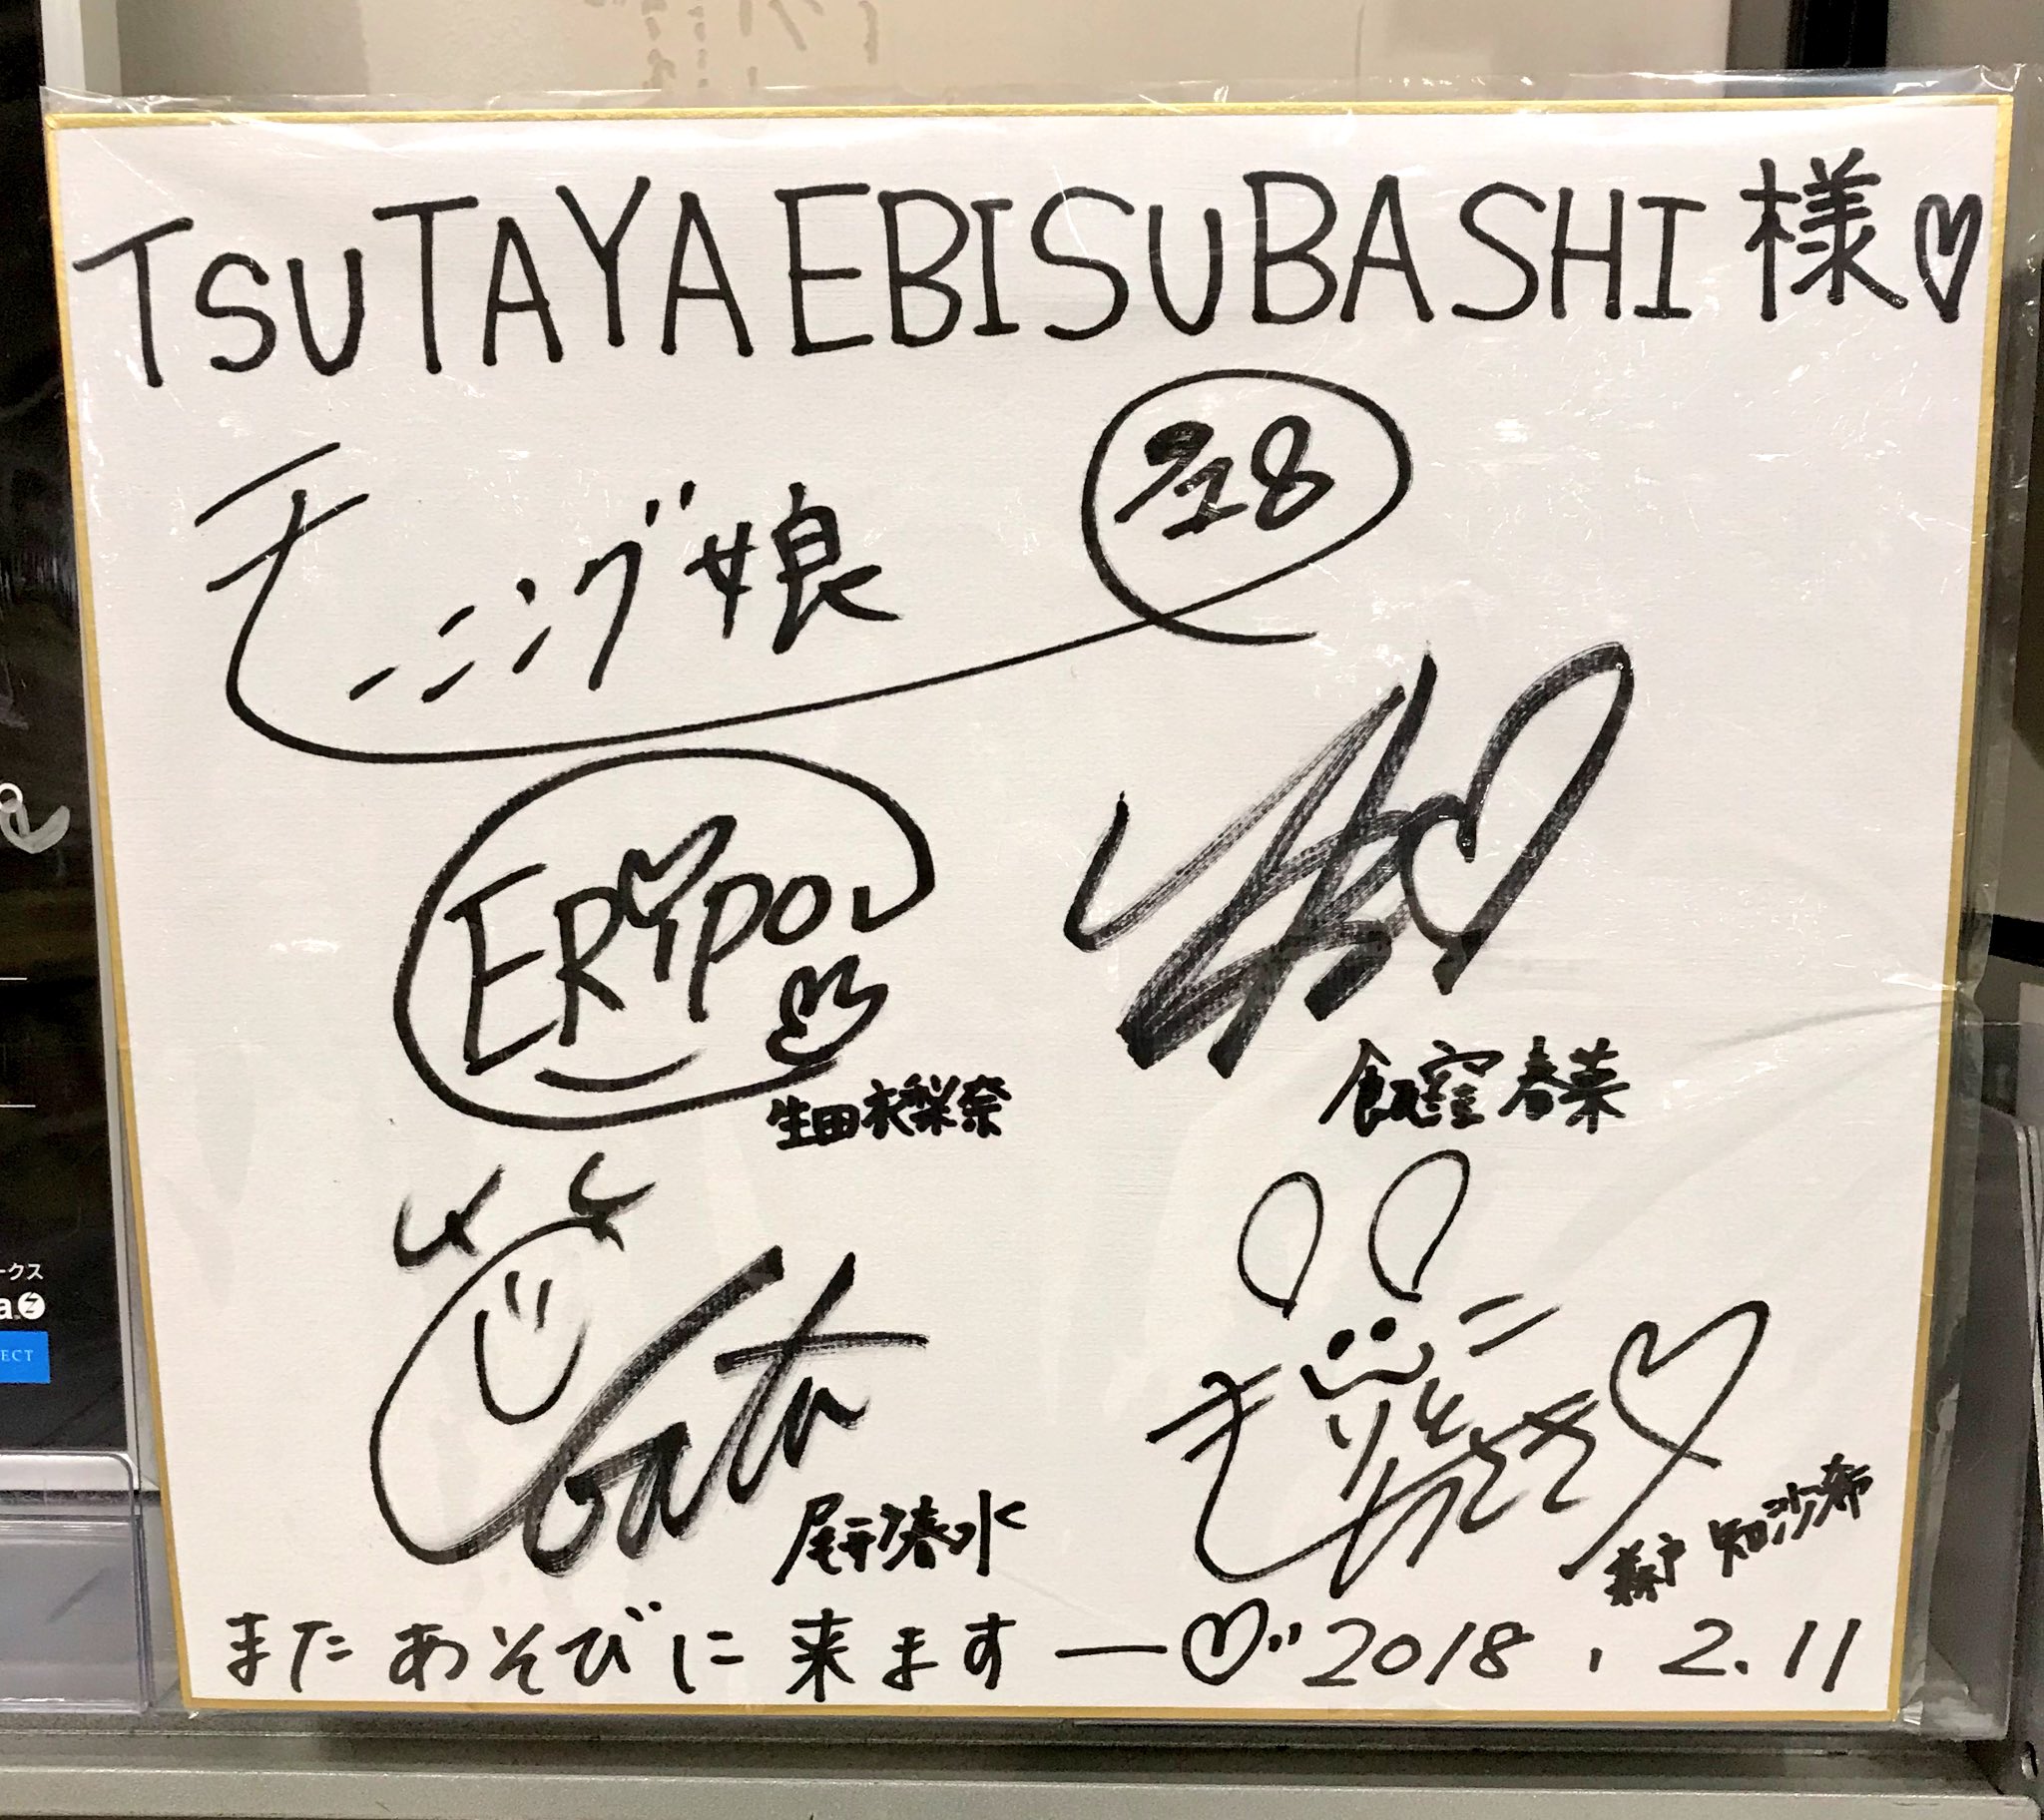 TSUTAYA EBISUBASHI 様♡
モーニング娘 '18
ERIPON
生田衣梨奈
飯窪春菜
Ogata
尾形春水
もりと ちさき
森戸 知沙希
また あそびに 来ます ー♡ 2018.2.11
ークス
ECT